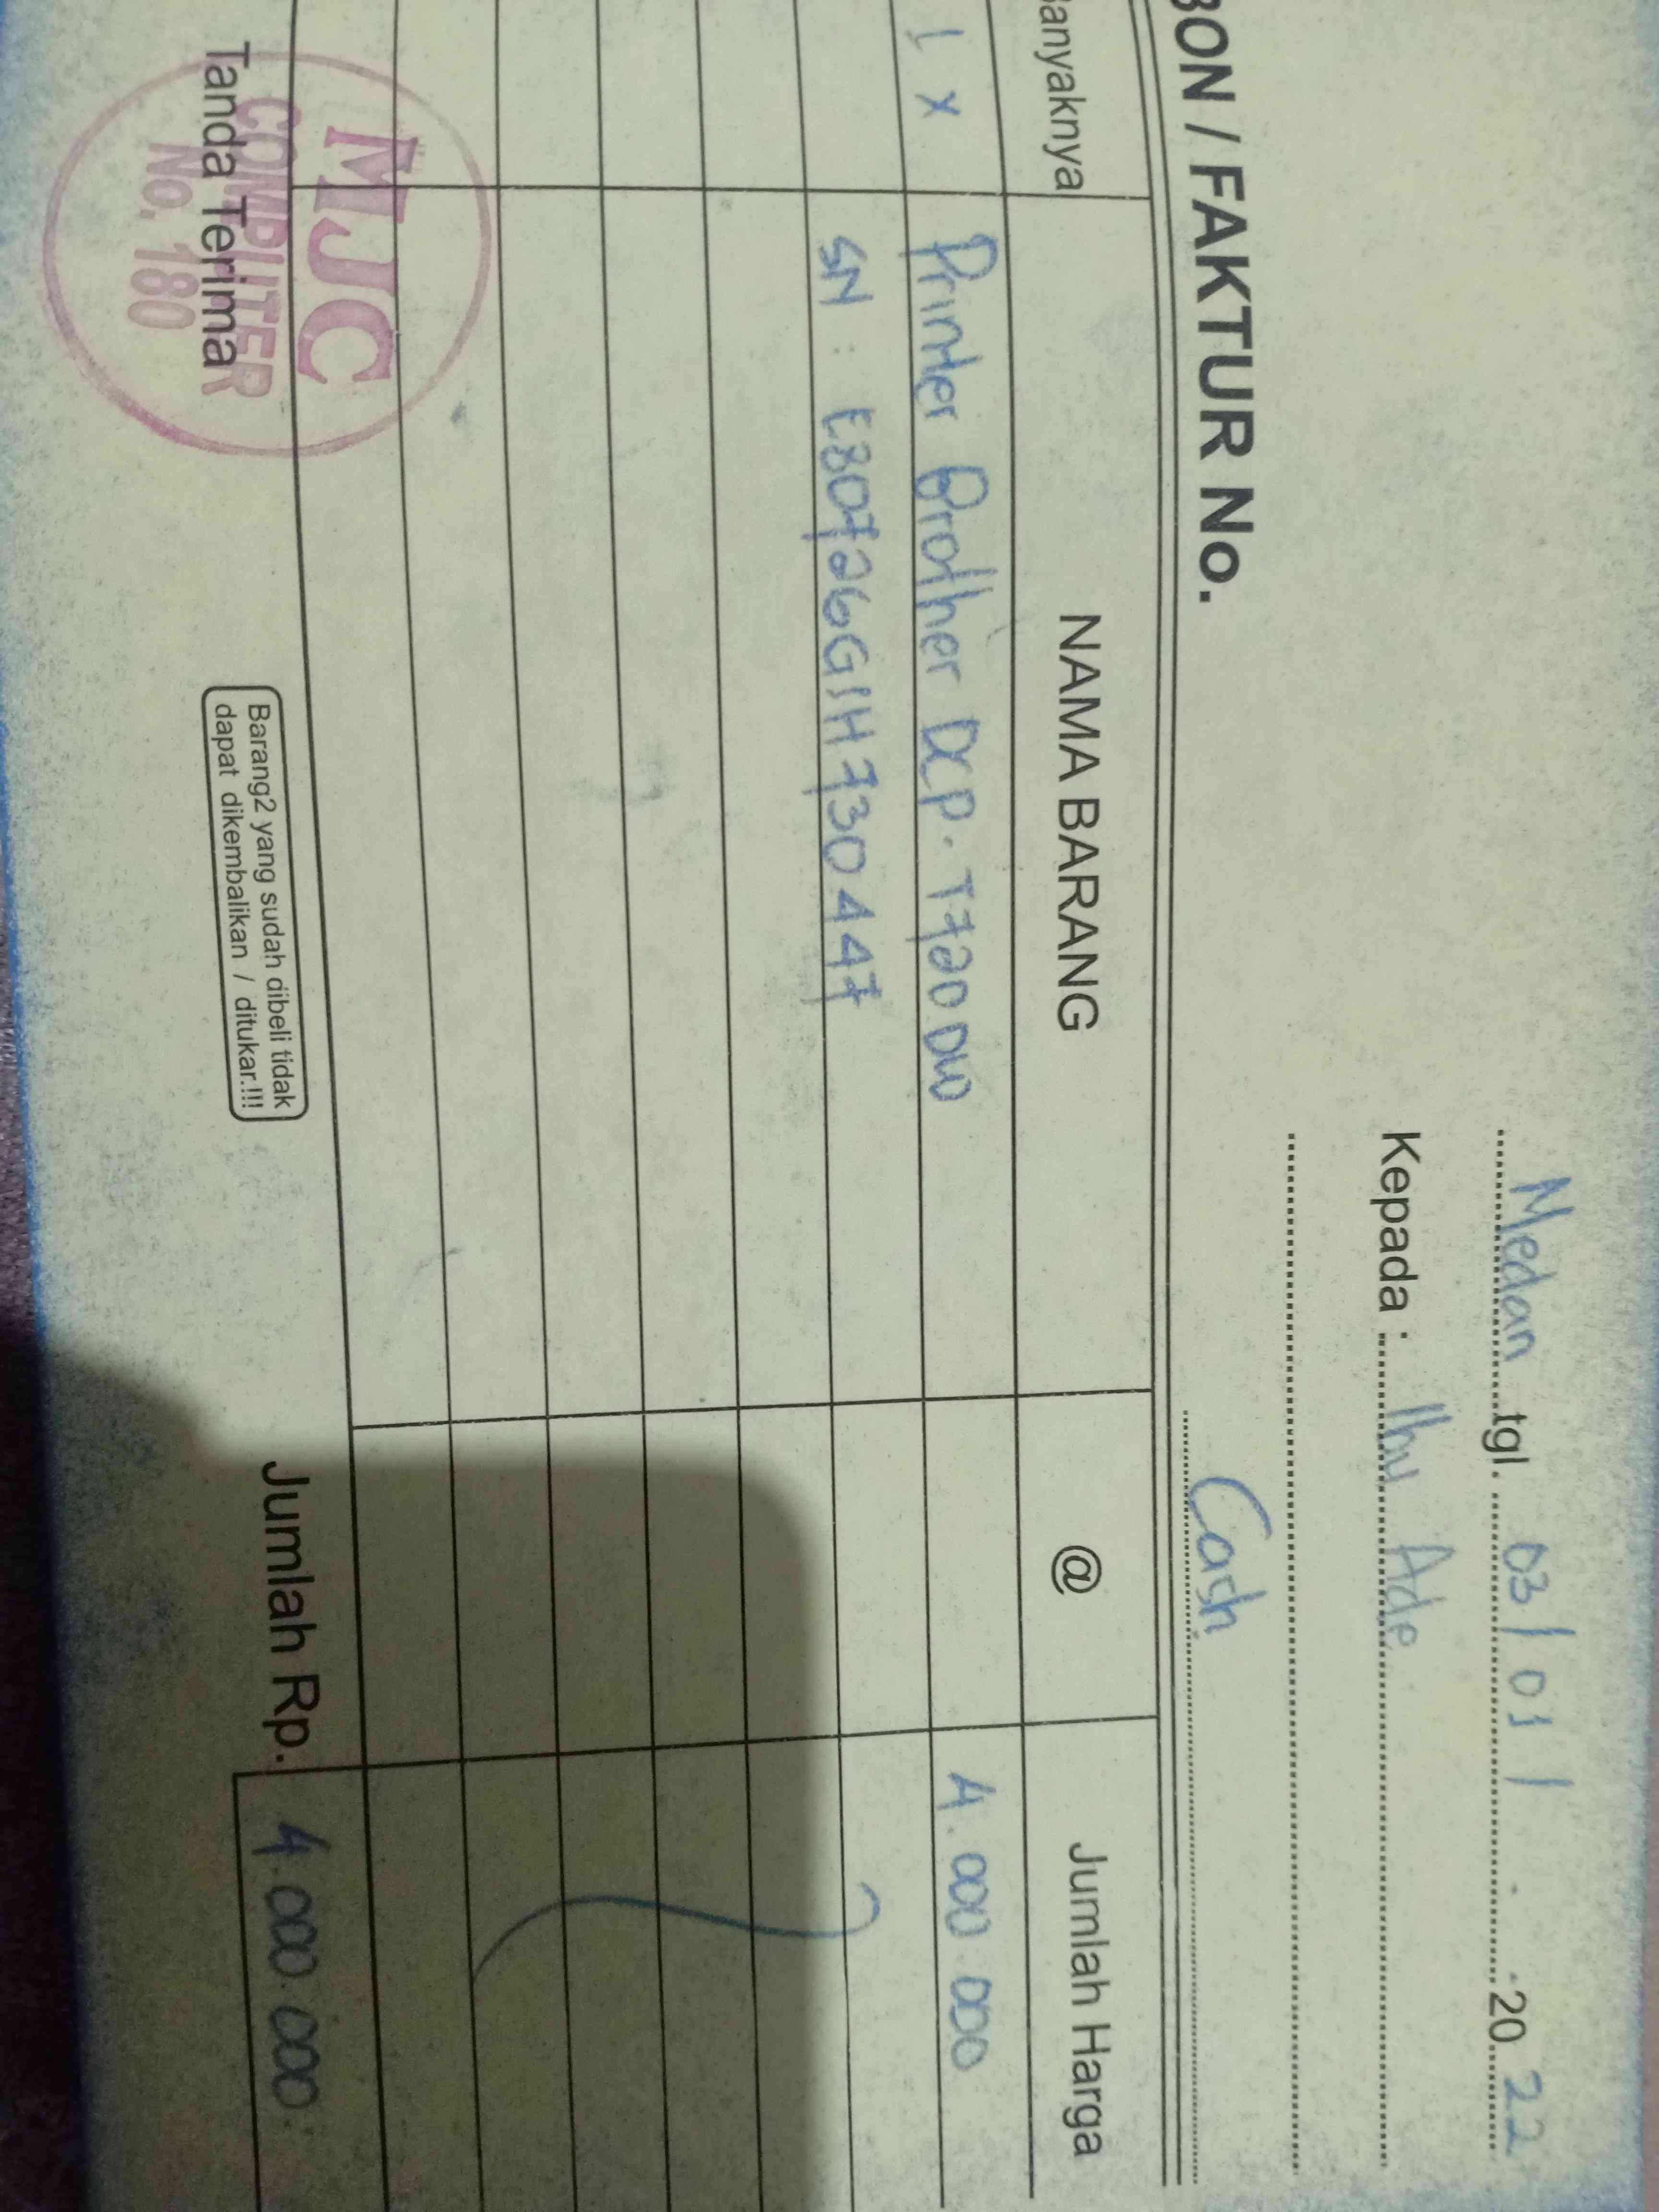 Medan tgl. 03 / 01 / -2022
Kepada : Ibu Ade
BON / FAKTUR No.
Cash
Banyaknya NAMA BARANG @ Jumlah Harga
1 x Printer Brother DCP. T720 DW 4.000 000
SN : E80726G1H730447
Jumlah Rp. 4.000.000
Tanda Terima
Barang2 yang sudah dibeli tidak
dapat dikembalikan / ditukar.!!!
MJC
COMPUTER
No. 180